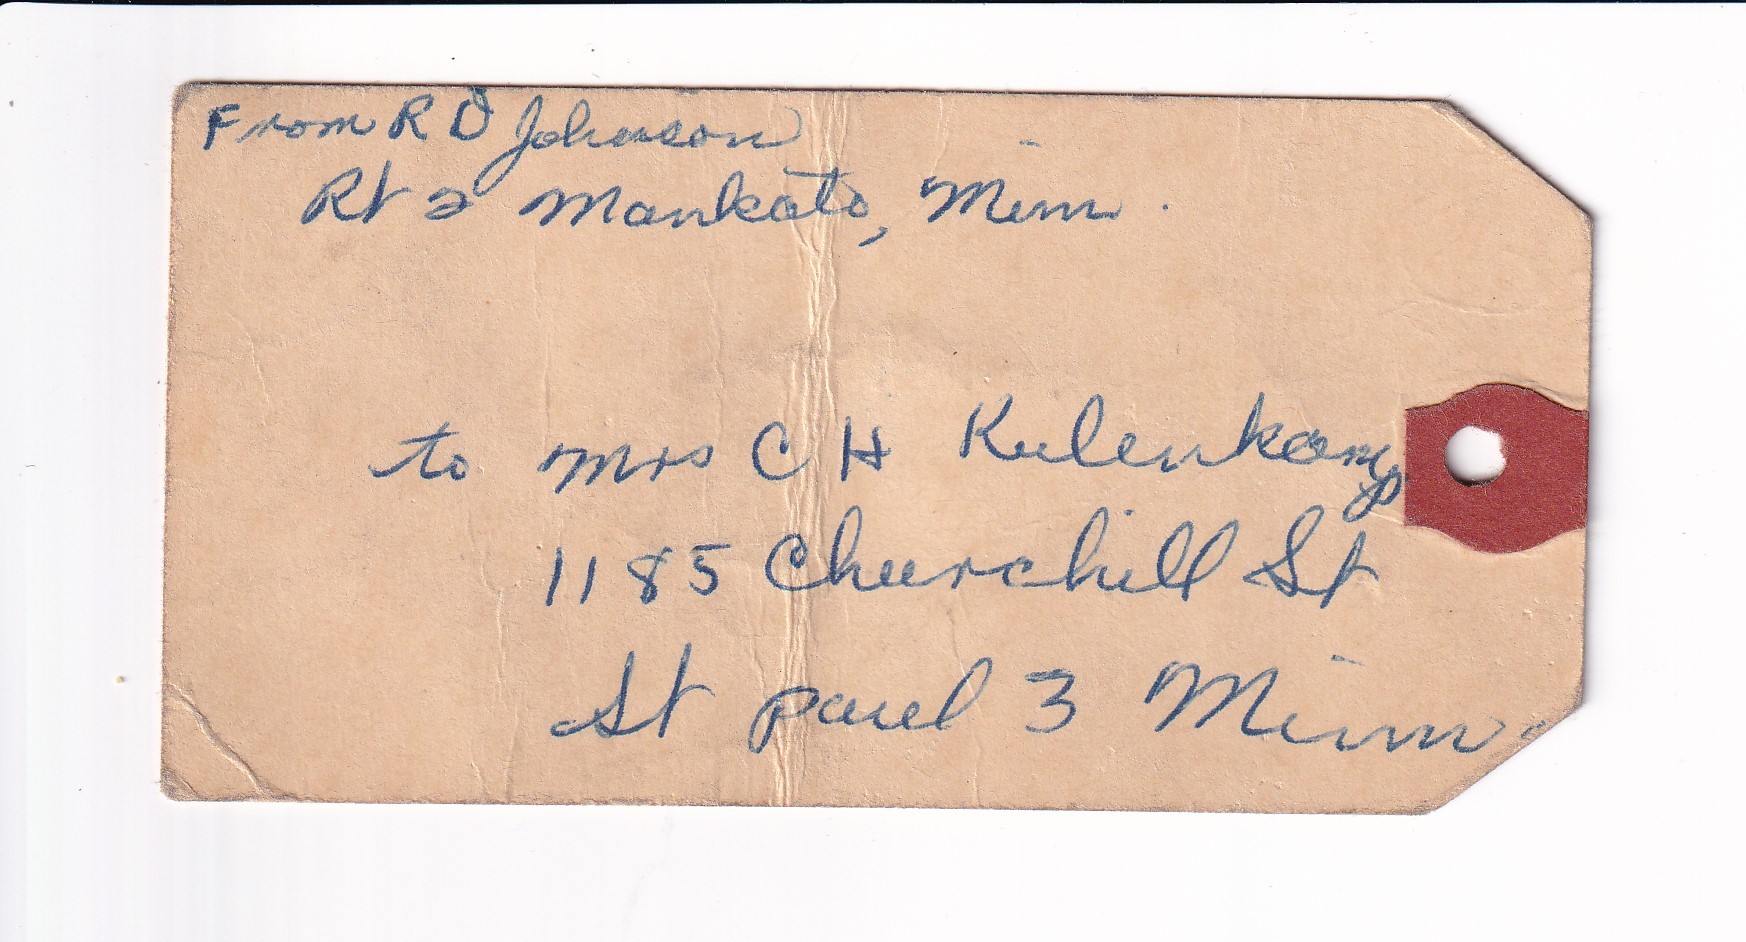 From R D Johnson
Rt 2 Mankato, Minn.
to Mrs C H Kulenkamp
1185 Churchill St
St paul 3 Minn.